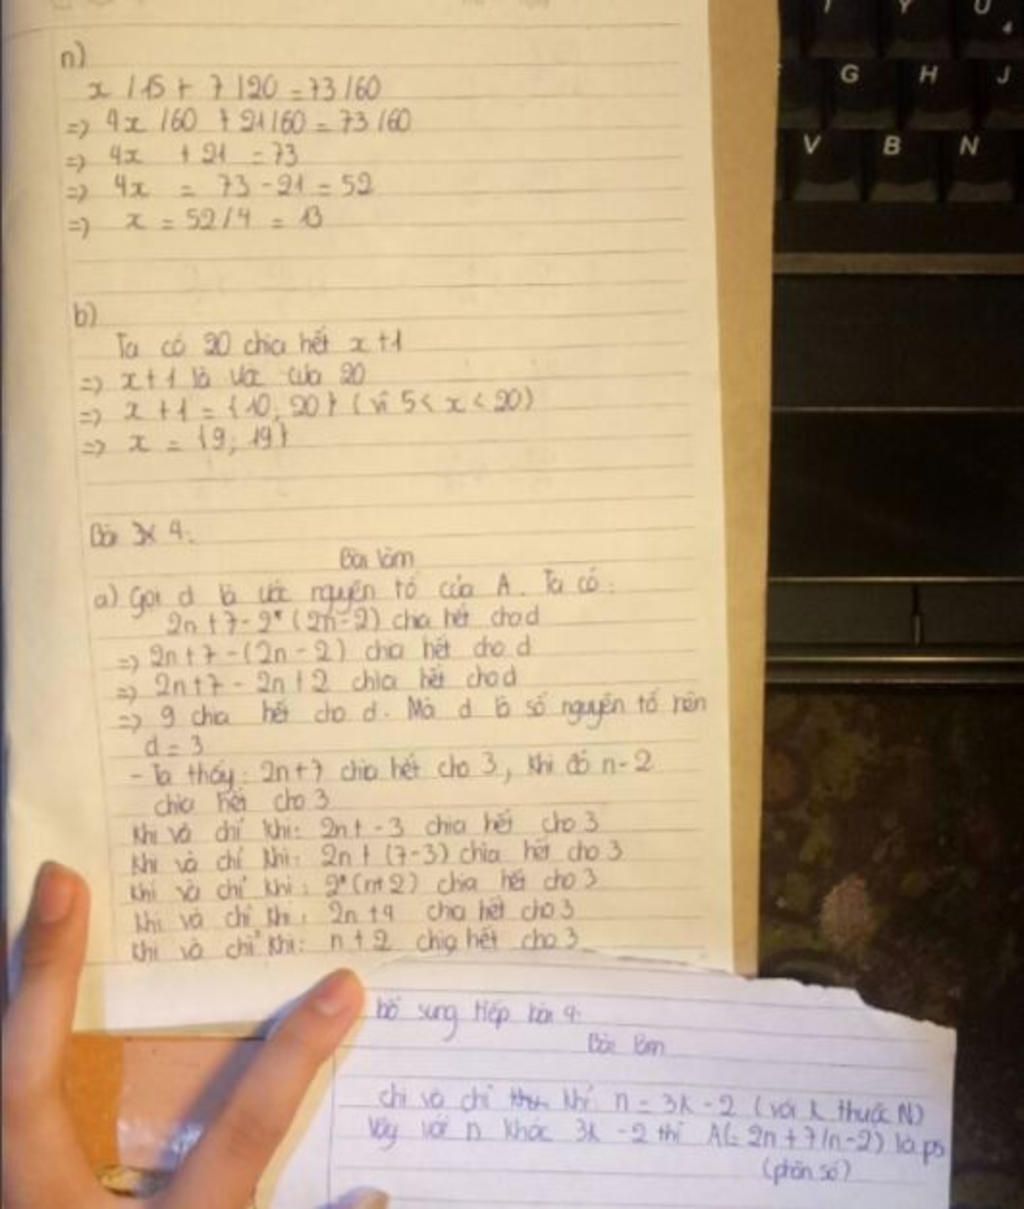 n)
x /15 + 7 /20 = 73/60
=> 4x /60 + 21/60 = 73/60
=> 4x + 21 = 73
=> 4x = 73 - 21 = 52
=> x = 52/4 = 13
b)
Ta có 20 chia hết x+1
=> x+1 là ước của 20
=> x+1 = {10, 20} (vì 5 < x < 20)
=> x = {9; 19}
Bài 4:
Bài làm
a) Gọi d là ước nguyên tố của A. Ta có:
2n+7-2*(2n-2) chia hết cho d
=> 2n+7-(2n-2) chia hết cho d
=> 2n+7-2n+2 chia hết cho d
=> 9 chia hết cho d. Mà d là số nguyên tố nên
d = 3
- Ta thấy: 2n+7 chia hết cho 3, khi đó n-2
chia hết cho 3
Khi và chỉ khi: 2n+-3 chia hết cho 3
Khi và chỉ khi: 2n+(7-3) chia hết cho 3
Khi và chỉ khi: 2*(n+2) chia hết cho 3
Khi và chỉ khi: 2n+4 chia hết cho 3
Khi và chỉ khi: n+2 chia hết cho 3
bổ sung tiếp bài 4:
Bài làm
chi và chỉ khi n = 3k-2 (với k thuộc N)
Vậy với n khác 3k-2 thì A(=2n+7/n-2) là ps
(phân số)
G H J
V B N
Y U
4